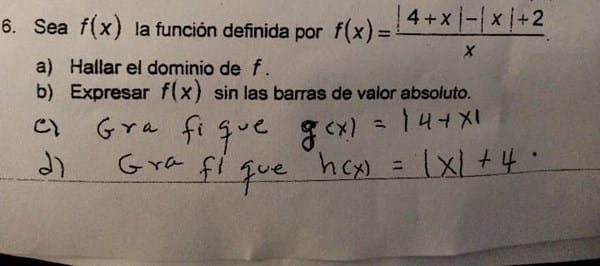 6. Sea f(x) la función definida por f(x) = |4+x|-|x|+2 / x .
a) Hallar el dominio de f.
b) Expresar f(x) sin las barras de valor absoluto.
c) Grafique g(x) = |4+x|
d) Grafique h(x) = |x| + 4 .